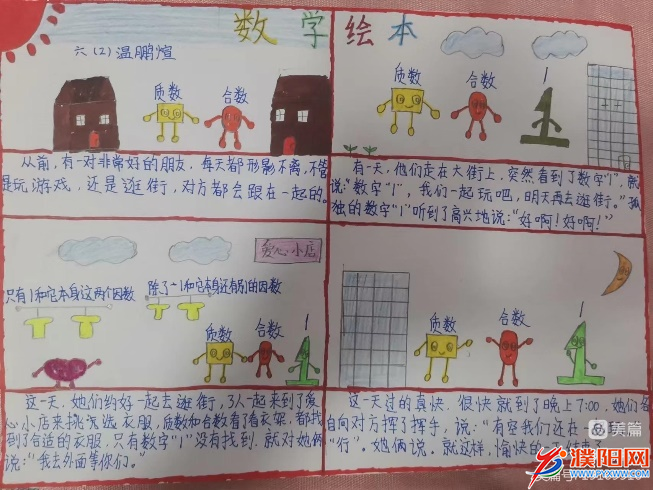 数学绘本
六(2)温鹏煊
质数
合数
从前,有一对非常好的朋友,每天都形影不离,不管
是玩游戏,还是逛街,对方都会跟在一起的。
质数
合数
1
有一天,他们走在大街上,突然看到了数字"1",就
说:"数字"1",我们一起玩吧,明天再去逛街。"孤
独的数字"1"听到了高兴地说:"好啊!好啊!"
爱心小店
只有1和它本身这两个因数
除了1和它本身还有别的因数
质数
合数
1
这一天,她们约好一起去逛街,3人一起来到了爱
心小店来挑选衣服,质数和合数看了看衣架,都找
到了合适的衣服,只有数字"1"没有找到,就对她俩
说:"我去外面等你们。"
质数
合数
1
这一天过的真快,很快就到了晚上7:00,她们各
自向对方挥了挥手,说:"有空我们还在一
"行"。她俩说。就这样,愉快的一天结束了
美篇
美篇号
濮阳网
WWW.PYXWW.COM